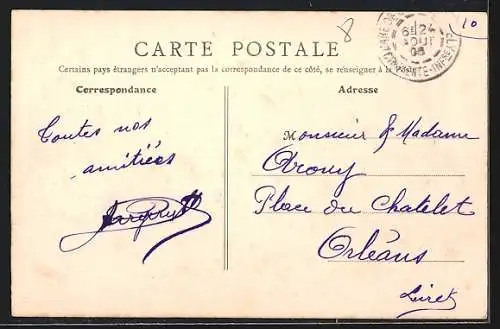 8
10
CARTE POSTALE
Certains pays étrangers n'acceptant pas la correspondance de ce côté, se renseigner à la Poste
Correspondance
Adresse
24
AOUT
06
CHARENTE-INFRE
Toutes nos
amitiées
Monsieur & Madame
Place du Chatelet
Orléans
Loiret